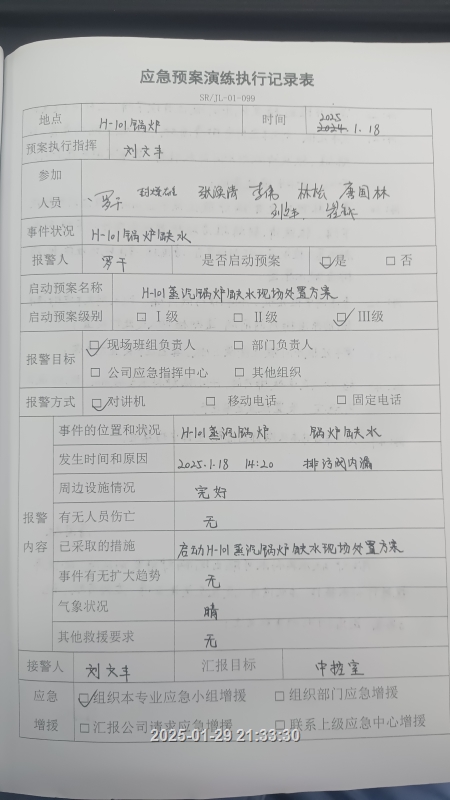 应急预案演练执行记录表
SR/JL-01-099
地点 H-101锅炉 时间 2025 2024.1.18
预案执行指挥 刘文丰
参加人员 罗干 张焕涛 李伟 林松 唐国林
事件状况 H-101锅炉缺水
报警人 罗干 是否启动预案 ☑是 □否
启动预案名称 H-101蒸汽锅炉缺水现场处置方案
启动预案级别 □Ⅰ级 □Ⅱ级 ☑Ⅲ级
报警目标 ☑现场班组负责人 □部门负责人
□公司应急指挥中心 □其他组织
报警方式 ☑对讲机 □移动电话 □固定电话
报警内容 事件的位置和状况 H-101蒸汽锅炉 锅炉缺水
发生时间和原因 2025.1.18 14:20 排污阀内漏
周边设施情况 完好
有无人员伤亡 无
已采取的措施 启动H-101蒸汽锅炉缺水现场处置方案
事件有无扩大趋势 无
气象状况 晴
其他救援要求 无
接警人 刘文丰 汇报目标 中控室
应急增援 ☑组织本专业应急小组增援 □组织部门应急增援
□汇报公司请求应急增援 □联系上级应急中心增援
2025-01-29 21:33:30